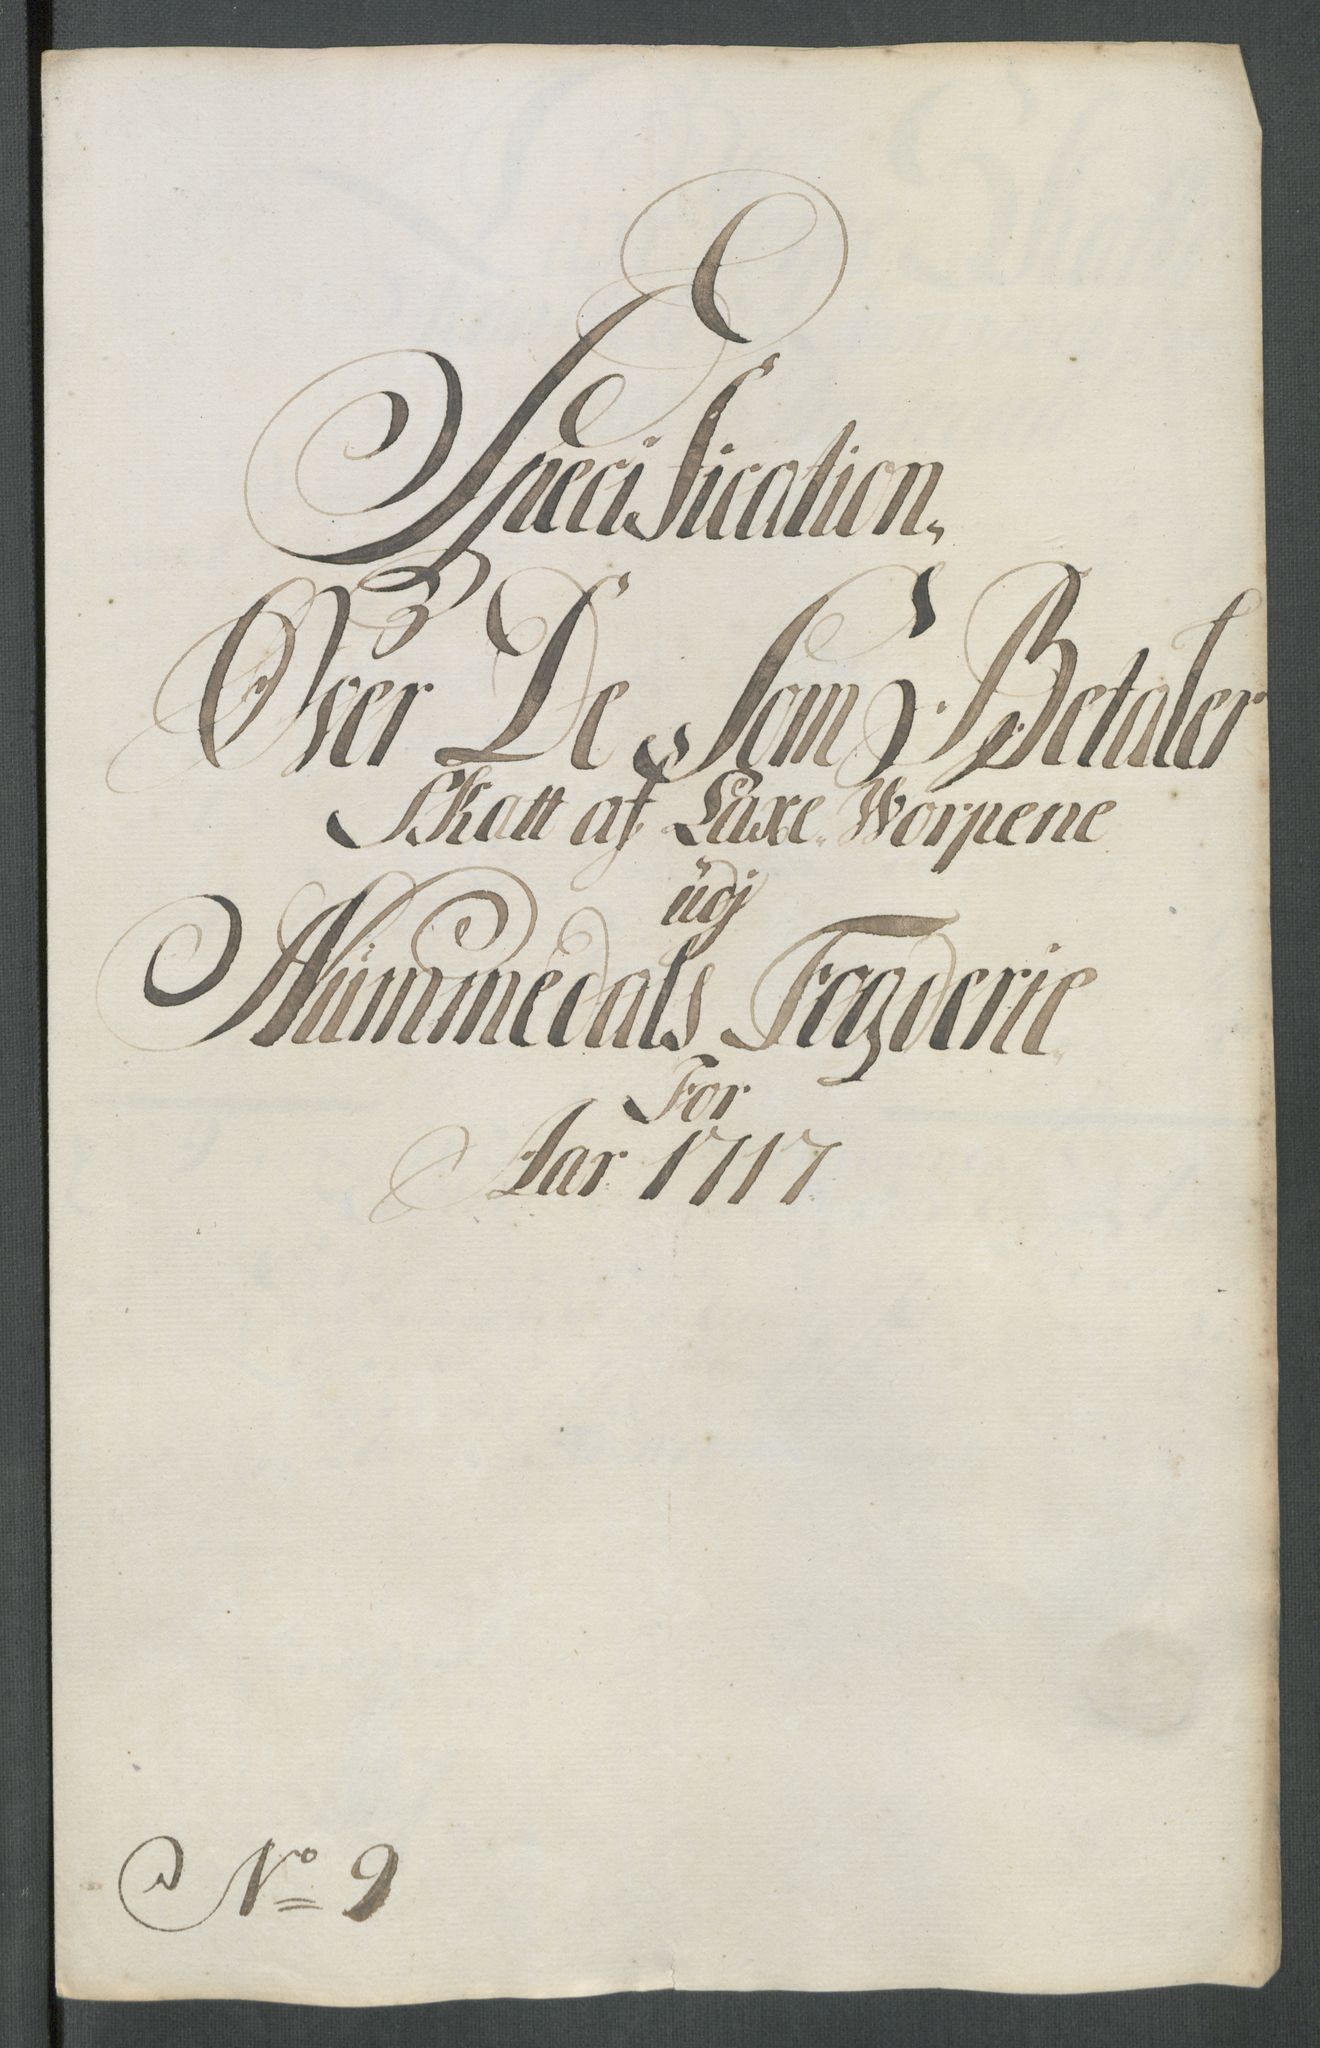 Specification,
Over De Som Betaler
Skatt af Laxe Worpene
üdj
Nümmedals Fogderie
For
Aar 1717
No 9